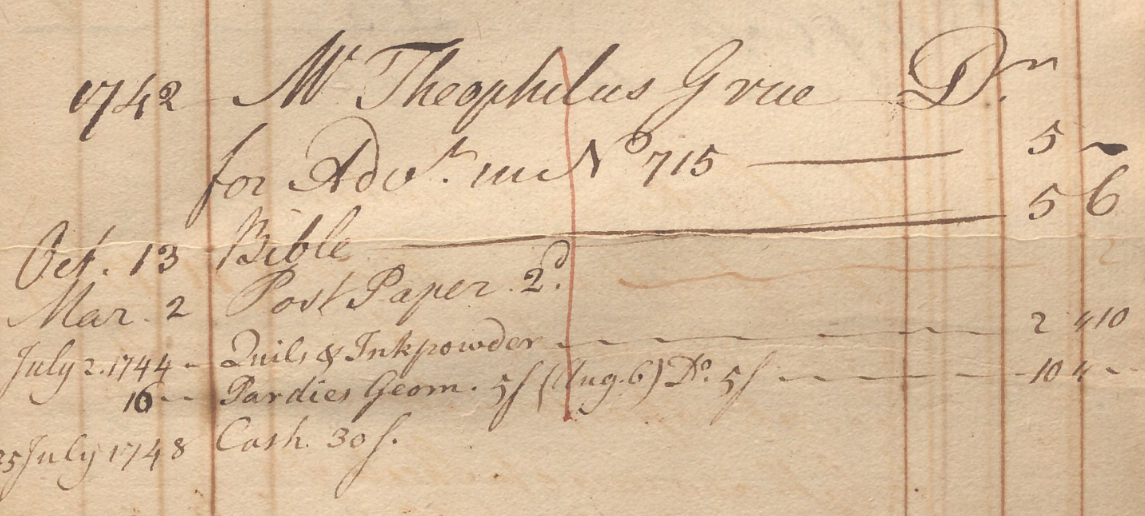 1742 Mr Theophilus Grue Dr.
for Advt. in No 715 — 5 -
Oct. 13 Bible — 5 6
Mar. 2 Post Paper 2d. 2
July 2. 1744 - Quils & Inkpowder - - - 2 "10
16 - - Pardies Geom. 5/ (Aug. 6) Do. 5/ - - - 10 " -
25 July 1748 Cash 30/.